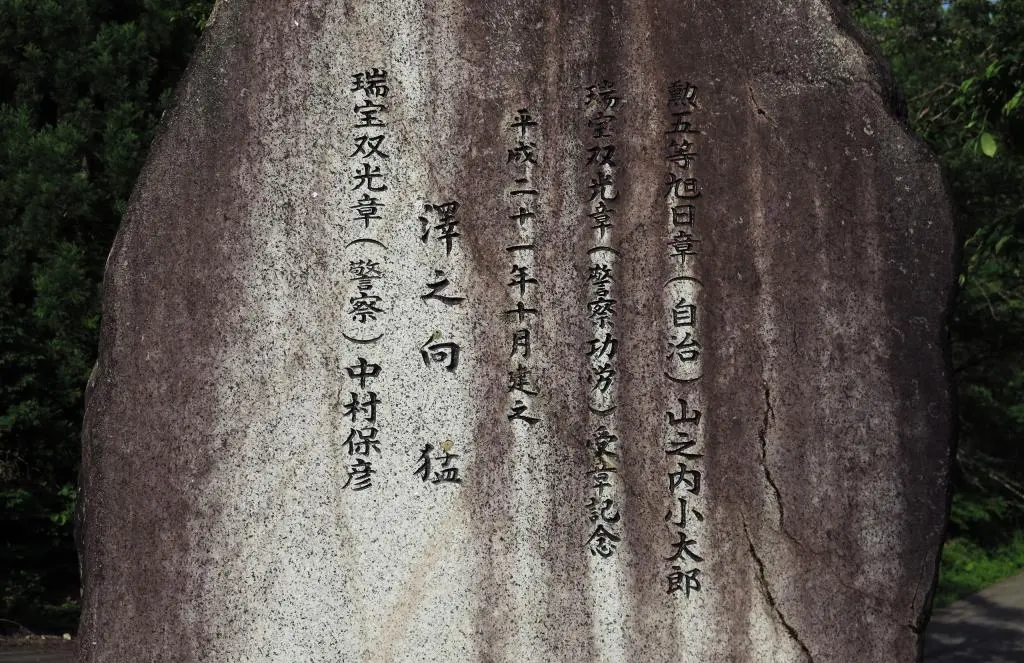 勲五等旭日章（自治）山之内小太郎
瑞宝双光章（警察功労）受章記念
平成二十一年十月建之
澤之向猛
瑞宝双光章（警察）中村保彦